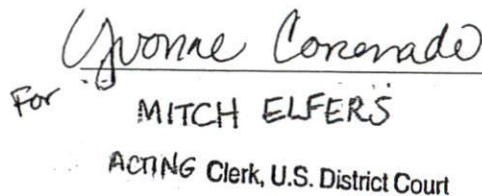 Yvonne Coronado
For
MITCH ELFERS
ACTING Clerk, U.S. District Court